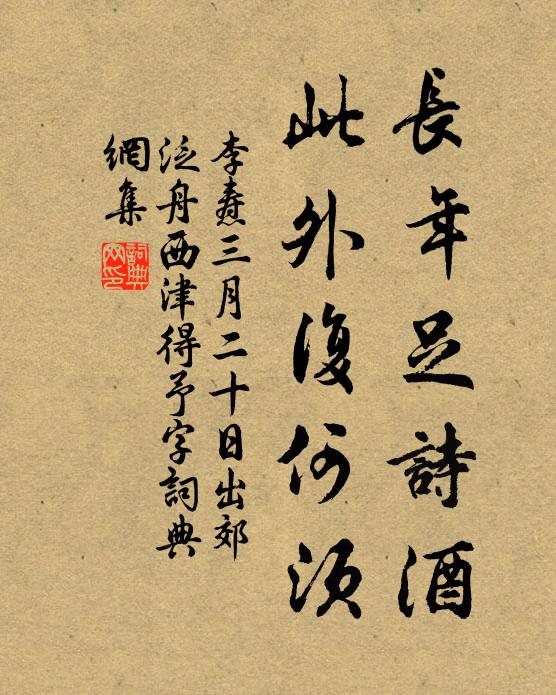 長年足詩酒
此外復何須
李燾三月二十日出郊
泛舟西津得予字詞典
網集
詞典
网印